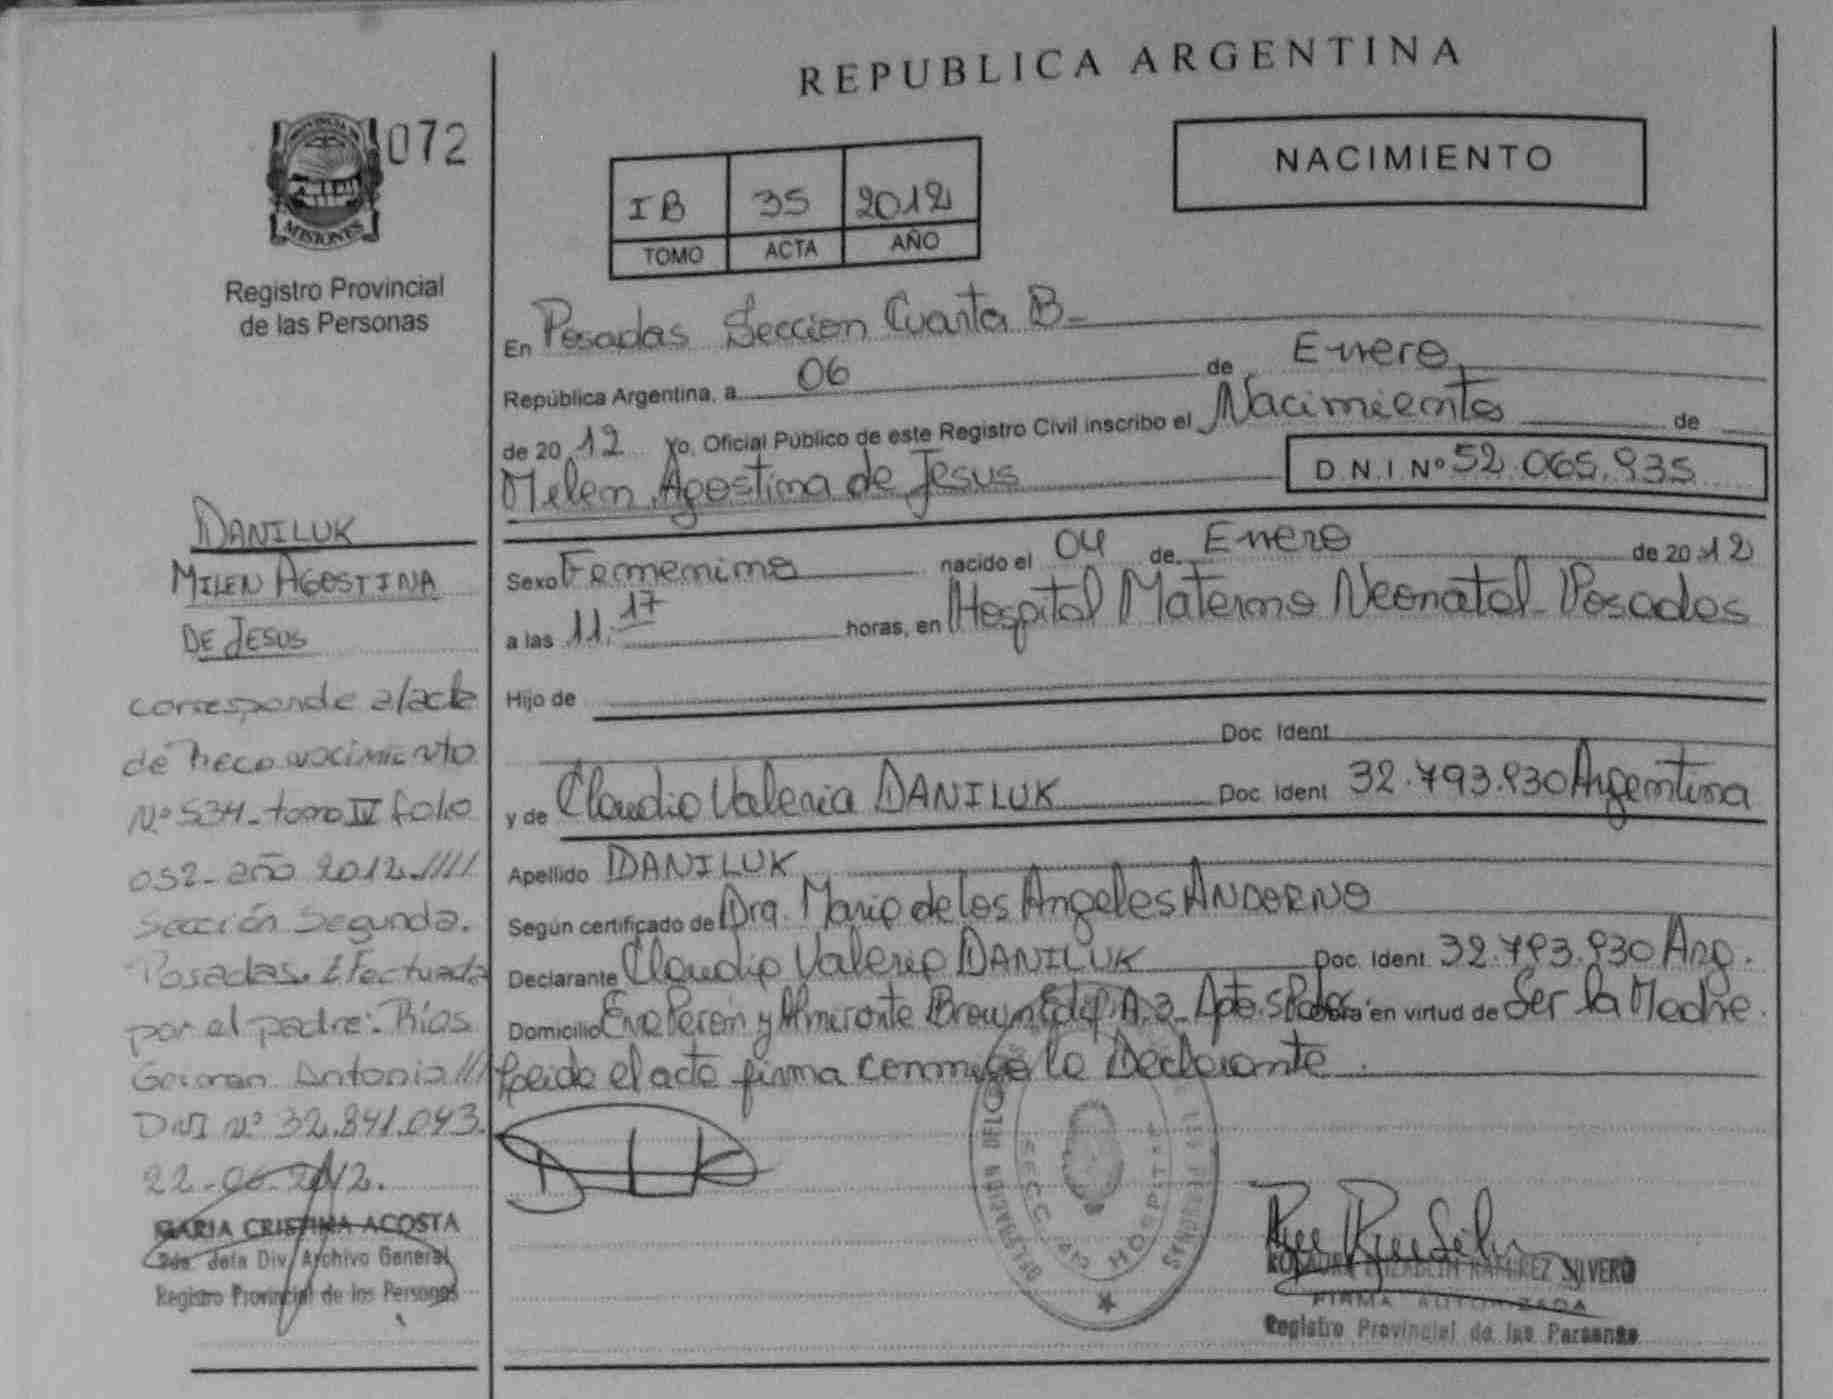 REPUBLICA ARGENTINA
PROVINCIA DE
MISIONES
072
Registro Provincial
de las Personas
NACIMIENTO
IB 35 2012
TOMO ACTA AÑO
En Posadas Seccion Cuarta B-
República Argentina, a 06 de Enero
de 2012 Yo, Oficial Público de este Registro Civil inscribo el Nacimiento de
Milen Agostina de Jesus D.N.I. Nº 52.065.935
Sexo Femenino nacido el 04 de Enero de 2012
a las 11:17 horas, en Hospital Materno Neonatal-Posadas
Hijo de
Doc. Ident
y de Claudia Valeria DANILUK Doc. Ident 32.793.930 Argentina
Apellido DANILUK
Según certificado de Dra. Maria de los Angeles ANDORNO
Declarante Claudia Valeria DANILUK Doc. Ident. 32.793.930 Arg.
Domicilio Eva Peron y Almirante Brown Edif. A.3- Apto. 5 Pdas. Obra en virtud de Ser la Madre.
Leida el acta firma conmigo la Declarante.
DANILUK
MILEN AGOSTINA
DE JESUS
corresponde a/acta
de reconocimiento
Nº 534-tomo IV folio
052-año 2012.////
Sección Segunda.
Posadas. Efectuada
por el padre: Ríos
German Antonio///
DNI Nº 32.841.043.
22-06-2012.
MARIA CRISTINA ACOSTA
2da. Jefa Div. Archivo General
Registro Provincial de las Personas
DELEGACION DE
PERSONAS
SECC. 4a
HOSPITAL
ROSAURA ELIZABETH RAMIREZ SILVERO
FIRMA AUTORIZADA
Registro Provincial de las Personas